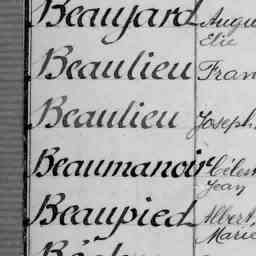 Beaujard Augu
Elie
Beaulieu Fran
Beaulieu Joseph
Beaumanoir Céles
Jean
Beaupied Albert,
Marie